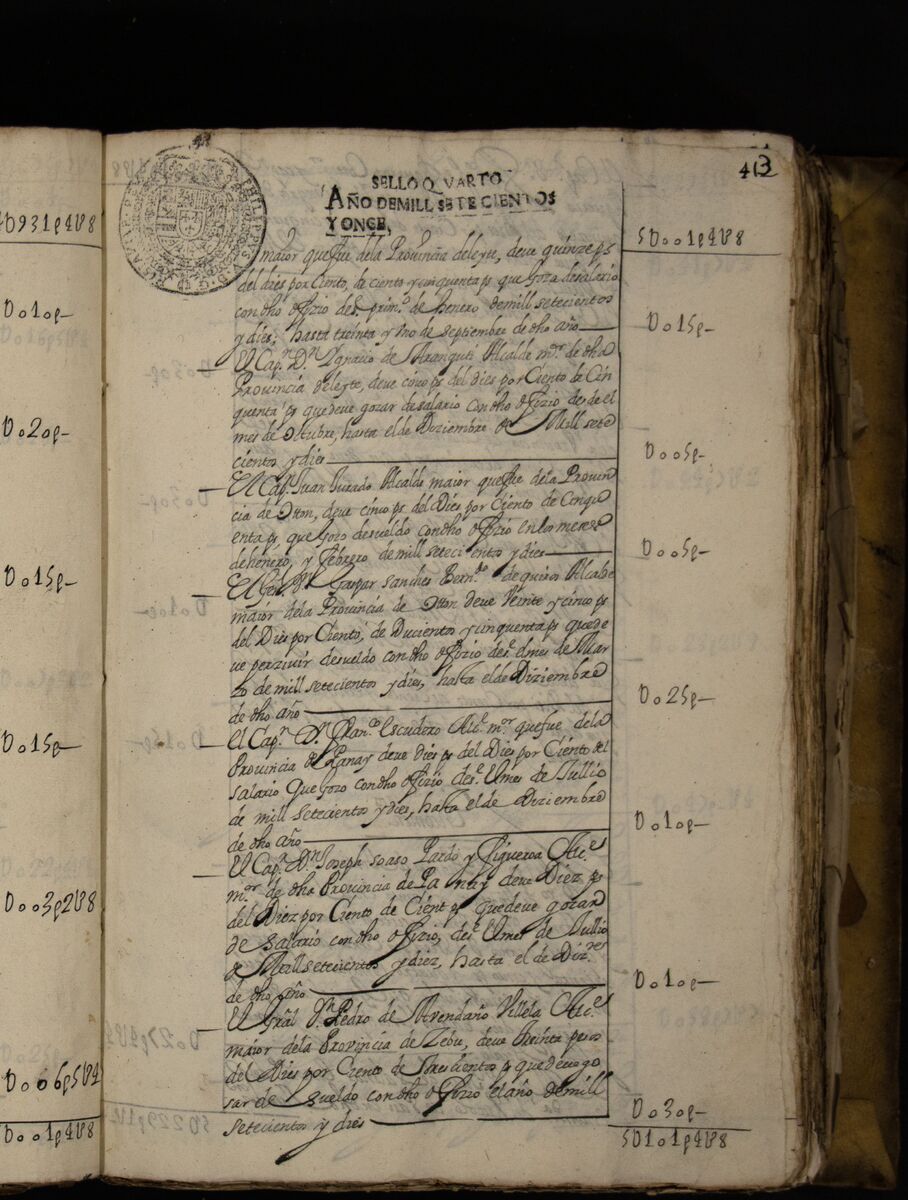 413
SELLO QVARTO
AÑO DE MILL SETECIENTOS
Y ONCE,
5U001p4U8
maior que fue dela Provinçia deleyte, deve quinze ps
del dies por Ciento, de ciento y cinquenta ps que Goza de salario
con dho offizio desde prim.o de henero de mill setecientos
y dies, hasta treinta y Uno de septiembre de dho año
U015p
El Cap.n D.n Ygnacio de Aranguti Alcalde m.or de dha
Provincia deleyte, deve cinco ps del dies por Ciento de Cin
quenta ps que deve gozar de salario con dho offizio desde el
mes de Octubre, hasta el de Diziembre de Mill sete
cientos y dies
U005p
El Cap.n Juan Jurado Alcalde maior que fue dela Provin
cia de Otton, deve cinco ps del Dies por Ciento de Cinqu
enta ps que Gozo de sueldo con dho offizio en los meses
de henero, y febrero de mill setecientos y dies
U005p
El Gen.l D.n Gaspar sanches Bern.do de quiros Alcalde
maior dela Provincia de Otton deve Veinte y cinco ps
del Dies por Ciento, de Ducientos y cinquenta ps que de
ve perzivir de sueldo con dho offizio des.e el mes de Mar
zo de mill setecientos y dies, hasta el de Diziembre
de dho año
U025p
El Cap.n D.n Fran.co Escudero Alc.e m.or que fue dela
Provincia de Panay deve dies ps del Dies por Ciento del
salario que Gozo con dho offizio des.e el mes de Jullio
de mill setecientos y dies, hasta el de Diziembre
de dho año
U010p
El Cap.n D.n Joseph soaso Pardo y Figueroa Alc.e
m.or de dha Provincia de Panay deve Diez ps
del Diez por Ciento de Cient ps que deve gozar
de salario con dho offizio, des.e el mes de Jullio
de Mill setecientos y diez, hasta el de Diz.re
de dho año
U010p
El Gral D.n Pedro de Avendaño Villela Alc.e
maior dela Provincia de Zebu, deve treinta pesos
del Dies por Ciento de trescientos ps que deve go
sar de sueldo con dho offizio el año de mill
setecientos y dies
U030p
5U101p4U8